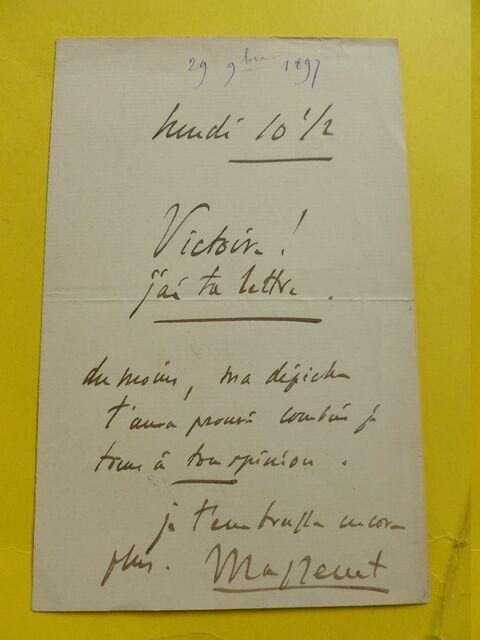 29 9bre 1897
lundi 10 1/2
Victoire !
j'ai ta lettre.
du moins, ma dépêche
t'aura prouvé combien je
tiens à ton opinion.
je t'embrasse encore
plus. Massenet